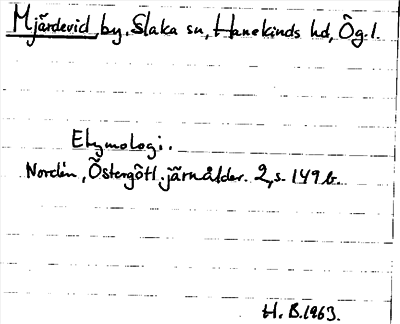 Mjärdevid, by, Slaka sn, Hanekinds hd, Ög.l.
Etymologi.
Nordén, Östergötl. järnålder. 2, s. 149 b.
H. B. 1963.